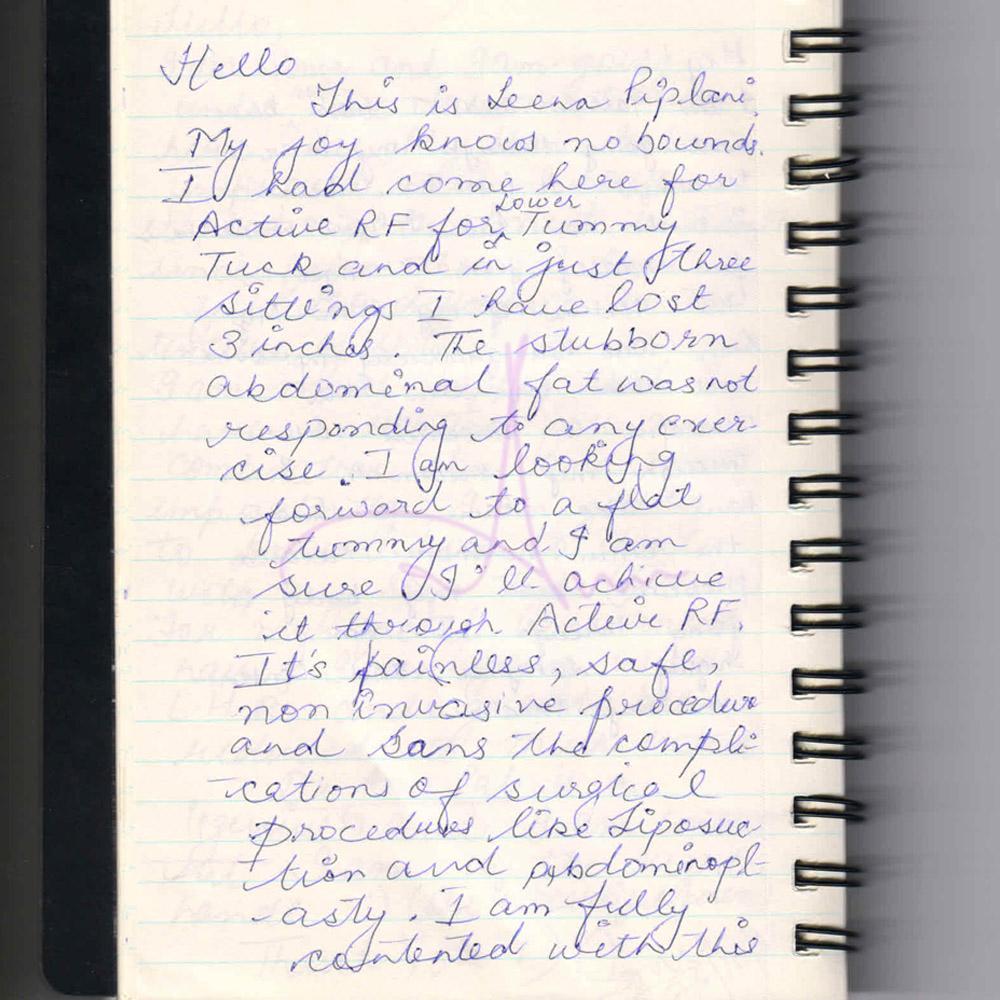 Hello
This is Leena Piplani
My joy knows no bounds.
I had come here for
Active RF for Lower Tummy
Tuck and in just three
sittings I have lost
3 inches. The stubborn
abdominal fat was not
responding to any exer-
cise. I am looking
forward to a flat
tummy and I am
sure I'll achieve
it through Active RF.
It's painless, safe,
non invasive procedure
and sans the compli-
-cations of surgical
procedures like Liposuc-
tion and Abdominopl-
-asty. I am fully
contented with this